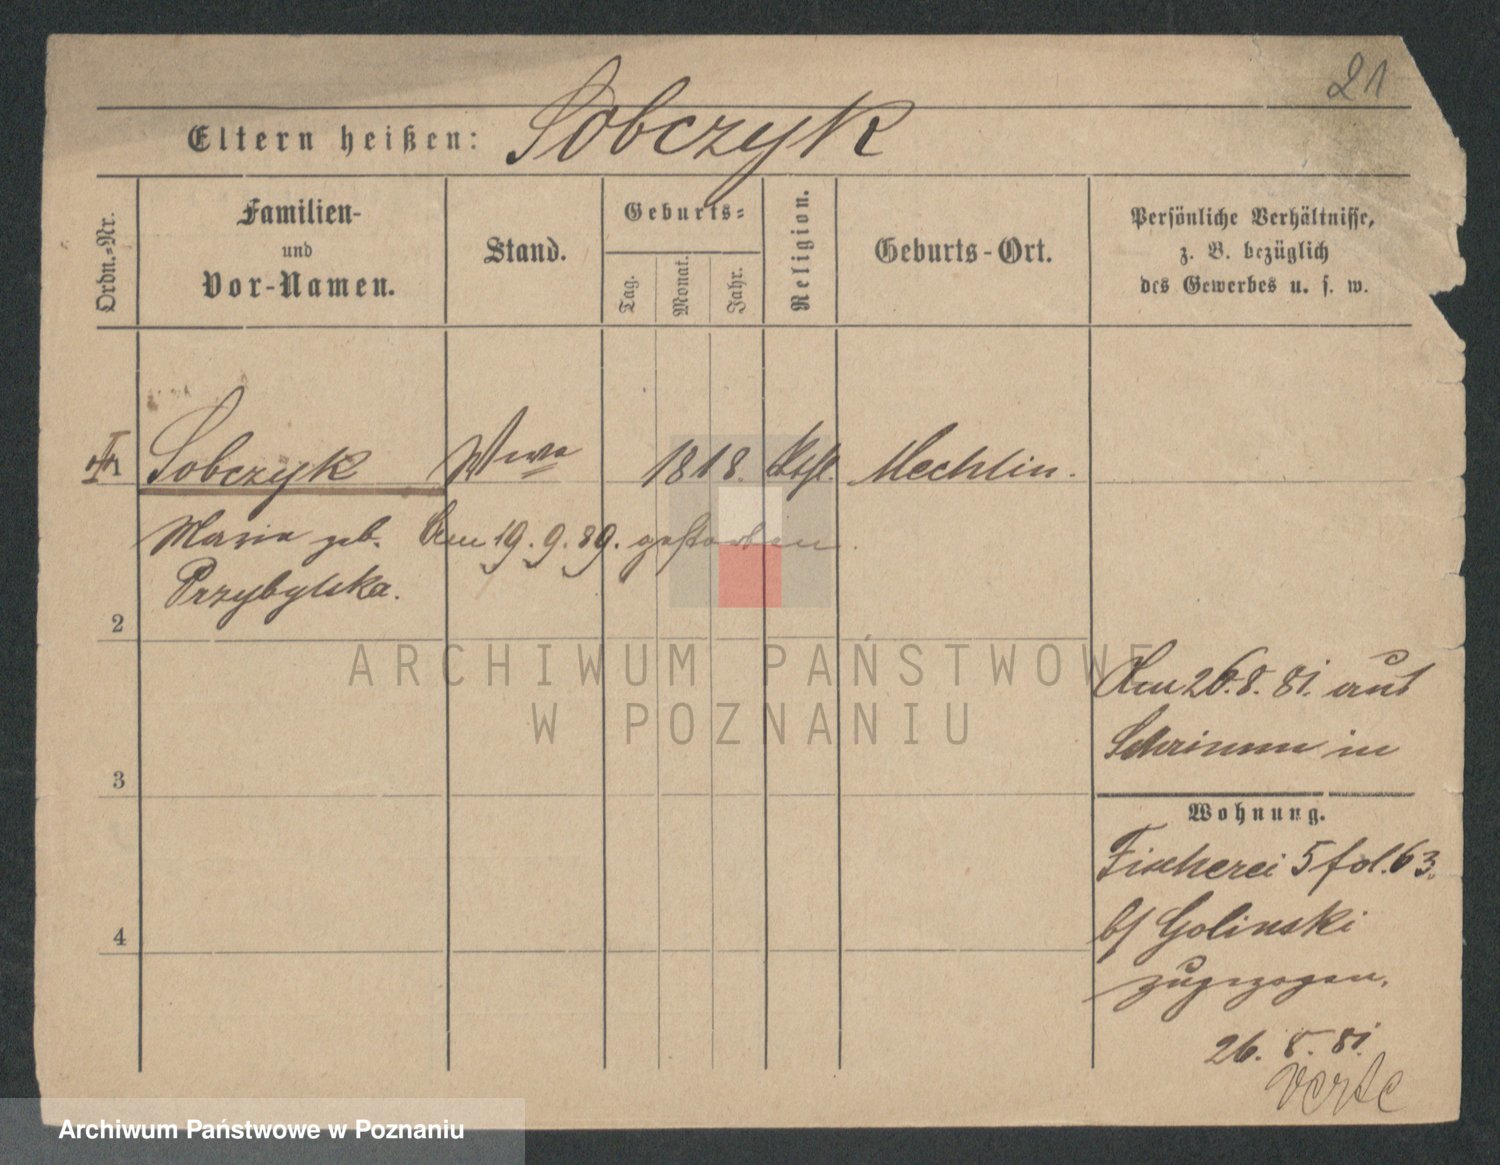 21
Eltern heißen: Sobczyk
Ordn.-Nr.
Familien-
und
Vor-Namen.
Stand.
Geburts-
Tag.
Monat.
Jahr.
Religion.
Geburts-Ort.
Persönliche Verhältnisse,
z. B. bezüglich
des Gewerbes u. s. w.
Sobczyk Wwe 1818. kthl. Mechlin.
Maria geb. Am 19.9.89. gestorben.
Przybylska.
2
ARCHIWUM PAŃSTWOWE
W POZNANIU
Am 26.8.81. aus
Schrimm in
3
Wohnung.
Fischerei 5 fol. 63.
b/ Golinski
4
zugezogen.
26. 8. 81.
verte
Archiwum Państwowe w Poznaniu